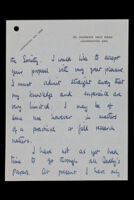 the Society. I would like to accept
your proposal with very great pleasure.
I must admit straight away that
my knowledge and experience are
very limited. I may be of
some use however in matters
of a practical or field research
nature.
I have not as yet had
time to go through all Daddy's
papers. At present I have only